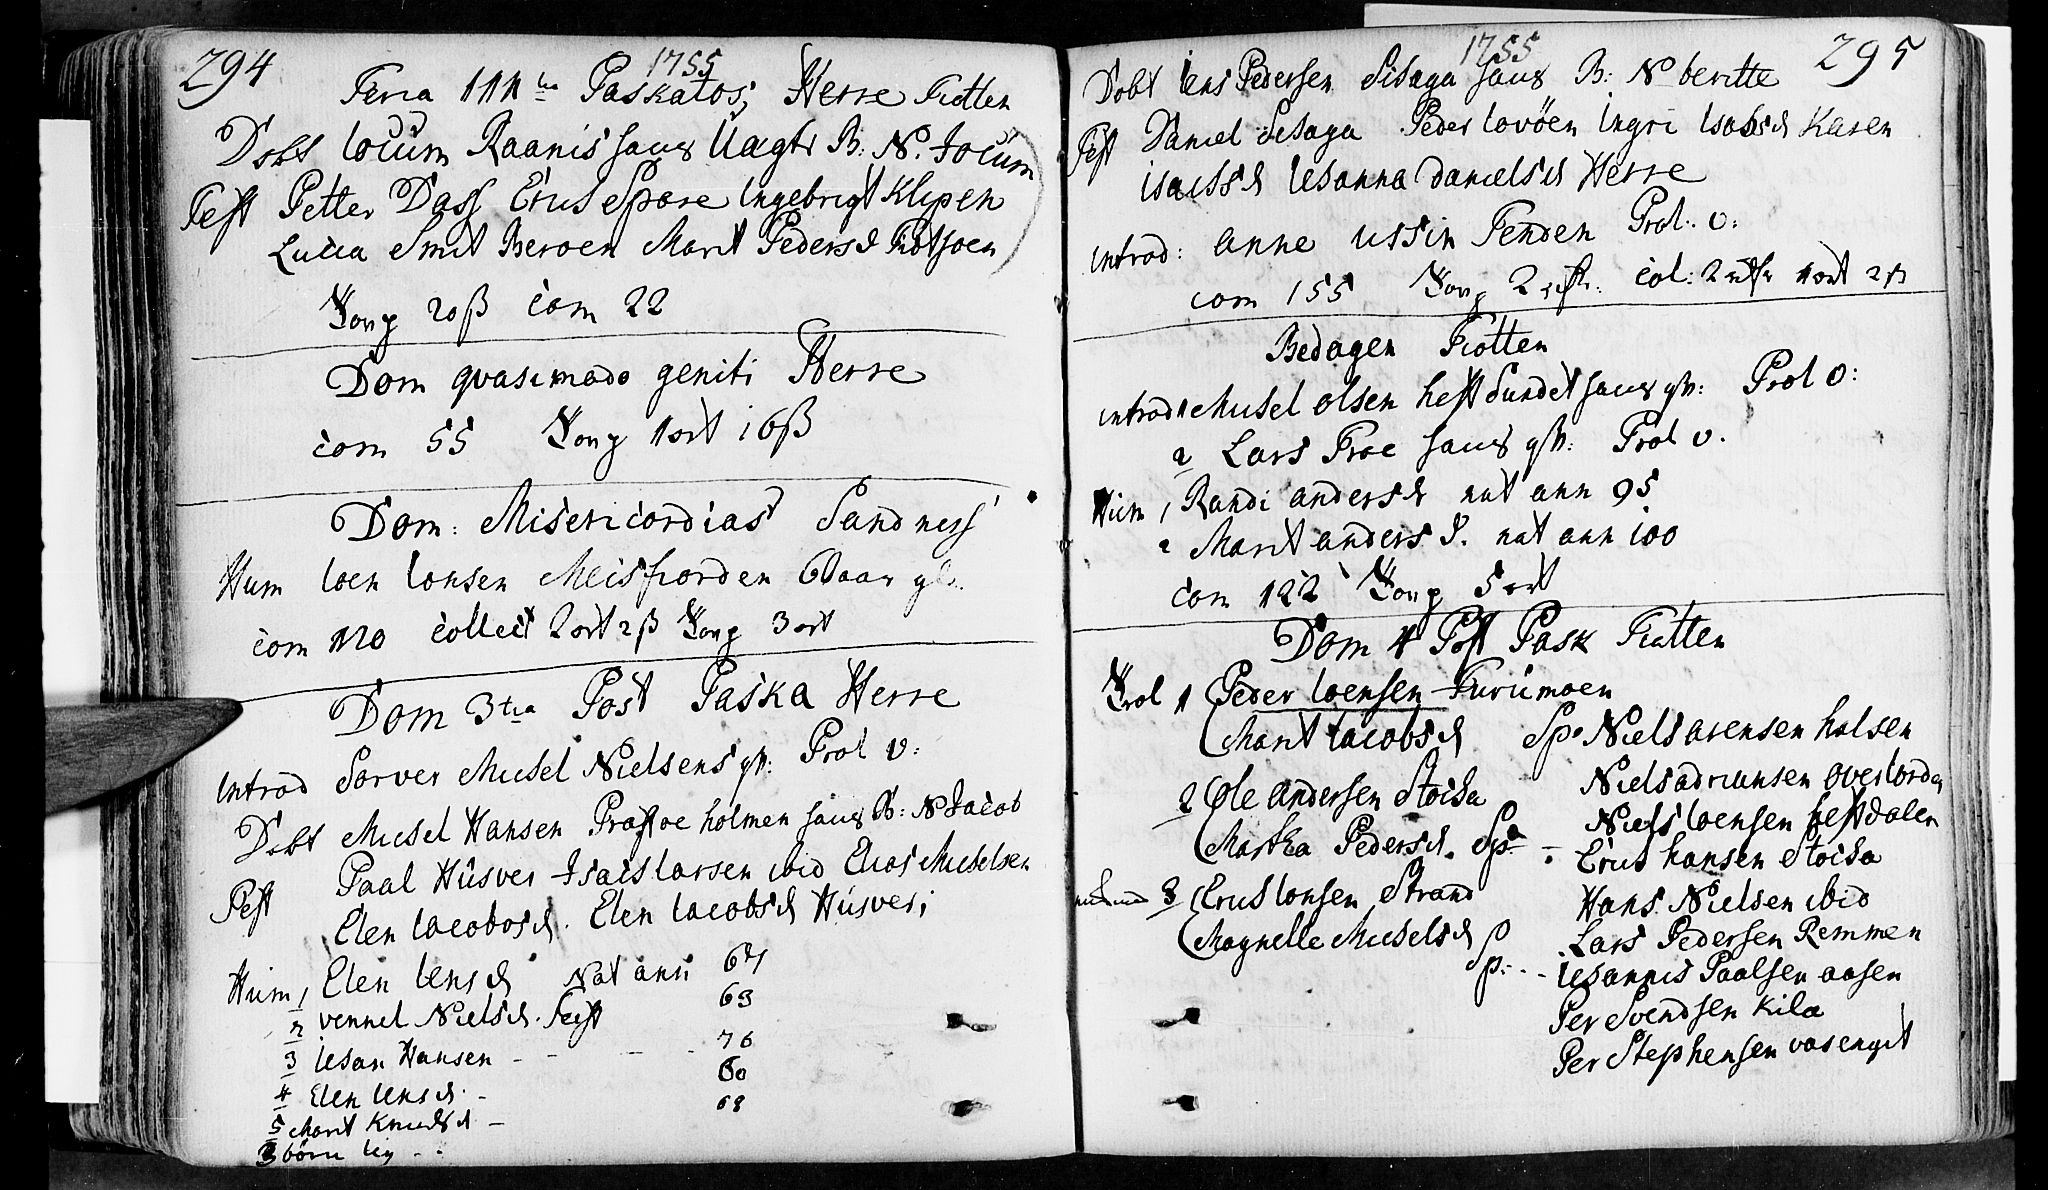 294
1755
Feria 111 tia Paskatos; Herre Fiotten
Dobt Iocum Raanis saug Uagtr B: N. Iocum
Test Petter Dass Erus Spore Ingebrigt Klipen
Lucia Smit Beroen Marit Peders d
Xong 20 ß com 22
Dom qvasimodo geniti Herre
com 55 Xong 1 ort 16 ß
Dom: Misericordias Sandness
Hum Ioen Ionsen Meisfiorden 6 aar
com 120 collect 2 ort 2 ß Xong 3 ort
Dom 3 tia Post Paska Herre
Introd Sorver Musel Nielsens qv: Prol v:
Dobt Musel Hansen holmen saug B: N Iacob
Test Paal Húsver Isacs Larsen ibid Elias Muselsen
Elen Iacobs d. Elen Iacobs d Húsver;
Hum 1 Elen Iens d Nat ann 64
2 vennel Niels d. 63
3 Iesan Hansen - - - - 76
4 Elen Iens d. - 60
5 Marit Knuds d - 68
3 børn lig - :
1755
295
Dobt Iens Pedersen saug B: N beritte
Test Daniel Peder Lovöen Ingri Isacs d Karen
isacs d Iesanna daniels d Herre
introd: anne ussin Fenden Prol. v:
com 155 Xong 2 col: 2 1 ort 2 ß
Bedagen Fiotten
introd 1 Musel olsen hest Sundet saug qv: Prol v:
2 Lars Froe saug qv: Prol v.
Hum 1, Randi anders d nat ann 95
2 Marit anders d. nat ann 100
com 122 Xong 5 ort
Dom 4 Post Pask Fiotten
Trol 1 (Peder Ioensen Furúmoen
(Marit Iacobs d Sp. Niels arensen holsen
Niels adriansen
2 (Ole andersen Stoisa
Niels Ioensen hestdalen
(Martha Peders d. Sp - : Erus hansen Stoisa
3 (Erus Ionsen Strand
Hans Nielsen ibid
(Magnelle Musels d
Lars Pedersen Remmen
Sp: . . - Iesannis Paalsen aasen
Per Svendsen Kila
Per Stephensen